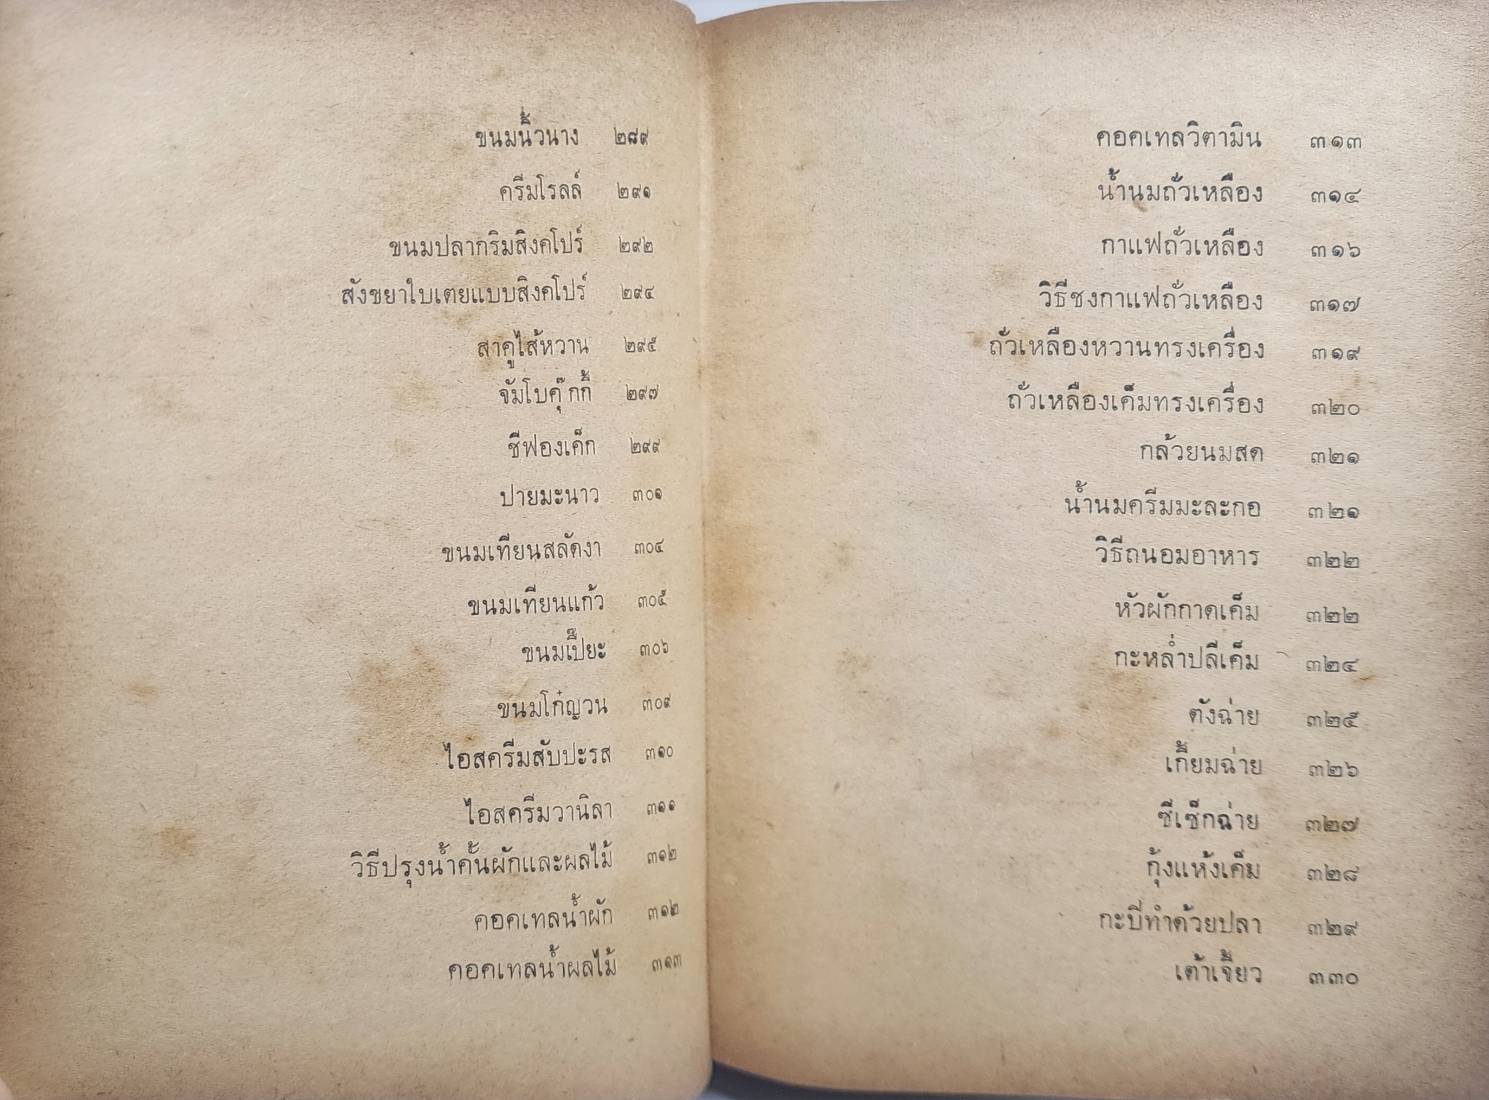 ขนมนิ้วนาง ๒๘๙
ครีมโรลล์ ๒๙๑
ขนมปลากริมสิงคโปร์ ๒๙๒
สังขยาใบเตยแบบสิงคโปร์ ๒๙๔
สาคูไส้หวาน ๒๙๕
จัมโบคุ๊กกี้ ๒๙๗
ชีฟองเค็ก ๒๙๙
ปายมะนาว ๓๐๑
ขนมเทียนสลัดงา ๓๐๔
ขนมเทียนแก้ว ๓๐๕
ขนมเปี๊ยะ ๓๐๖
ขนมโก๋ญวน ๓๐๙
ไอสครีมสับปะรส ๓๑๐
ไอสครีมวานิลา ๓๑๑
วิธีปรุงน้ำคั้นผักและผลไม้ ๓๑๒
คอคเทลน้ำผัก ๓๑๒
คอคเทลน้ำผลไม้ ๓๑๓
คอคเทลวิตามิน ๓๑๓
น้ำนมถั่วเหลือง ๓๑๔
กาแฟถั่วเหลือง ๓๑๖
วิธีชงกาแฟถั่วเหลือง ๓๑๗
ถั่วเหลืองหวานทรงเครื่อง ๓๑๙
ถั่วเหลืองเค็มทรงเครื่อง ๓๒๐
กล้วยนมสด ๓๒๑
น้ำนมครีมมะละกอ ๓๒๑
วิธีถนอมอาหาร ๓๒๒
หัวผักกาดเค็ม ๓๒๒
กะหล่ำปลีเค็ม ๓๒๔
ตังฉ่าย ๓๒๕
เกี้ยมฉ่าย ๓๒๖
ซีเซ็กฉ่าย ๓๒๗
กุ้งแห้งเค็ม ๓๒๘
กะปิ่ทำด้วยปลา ๓๒๙
เต้าเจี้ยว ๓๓๐